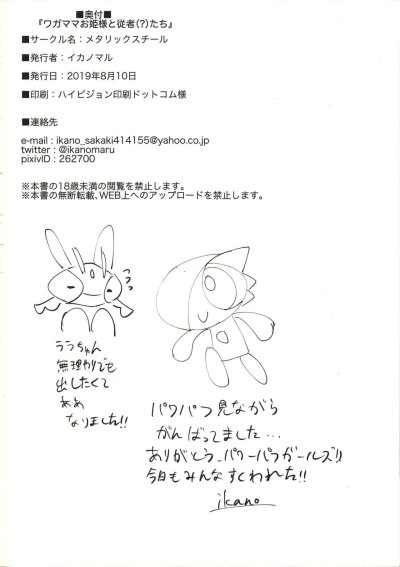 ■奥付■
『ワガママお姫様と従者(?)たち』
■サークル名：メタリックスチール
■発行者：イカノマル
■発行日：2019年8月10日
■印刷：ハイビジョン印刷ドットコム様
■連絡先
e-mail : ikano_sakaki414155@yahoo.co.jp
twitter : @ikanomaru
pixivID : 262700
※本書の18歳未満の閲覧を禁止します。
※本書の無断転載、WEB上へのアップロードを禁止します。
ララちゃん
無理やりでも
出したくて
ああ
なりました!!
パワパフ見ながら
がんばってました…
ありがとう、パワーパフガールズ!!
今日もみんなすくわれた!!
ikano